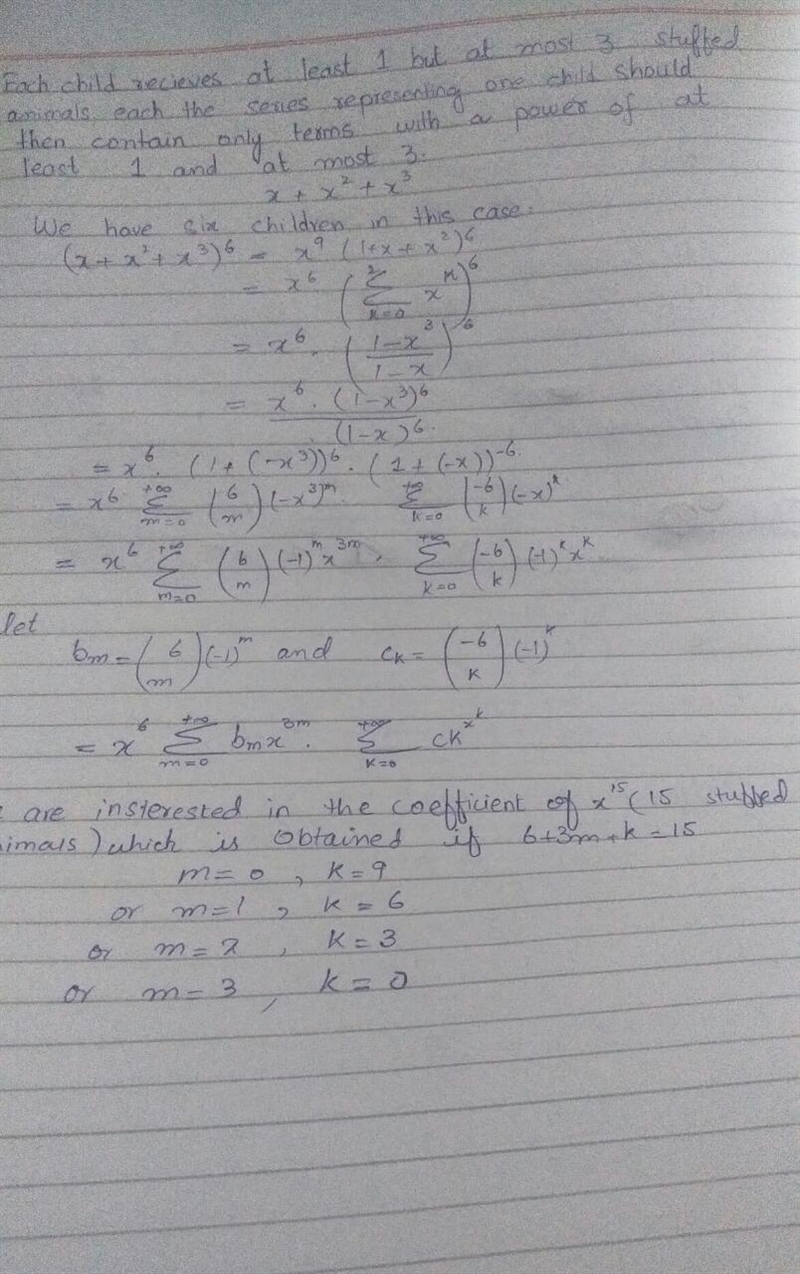 Each child recieves at least 1 but at most 3 stuffed
animals each the series representing one child should
then contain only terms with a power of at
least 1 and at most 3.
x + x² + x³
We have six children in this case.
(x + x² + x³)⁶ = x⁹ (1+x+x²)⁶
= x⁶ (∑_{k=0}^{2} x^k)⁶
= x⁶ . ((1-x³)/(1-x))⁶
= (x⁶ . (1-x³)⁶)/((1-x)⁶)
= x⁶ . (1+(-x³))⁶ . (1+(-x))⁻⁶
= x⁶ ∑_{m=0}^{+∞} (6 m) (-x³)^m . ∑_{k=0}^{+∞} (-6 k) (-x)^k
= x⁶ ∑_{m=0}^{+∞} (6 m) (-1)^m x^{3m} . ∑_{k=0}^{+∞} (-6 k) (-1)^k x^k
let
bm = (6 m) (-1)^m and ck = (-6 k) (-1)^k
= x⁶ ∑_{m=0}^{+∞} bm x^{3m} . ∑_{k=0}^{+∞} ck^{x^k}
are insterested in the coefficient of x¹⁵ (15 stuffed
imals) which is obtained if 6+3m+k=15
m=0, k=9
or m=1, k=6
or m=2, k=3
or m=3, k=0